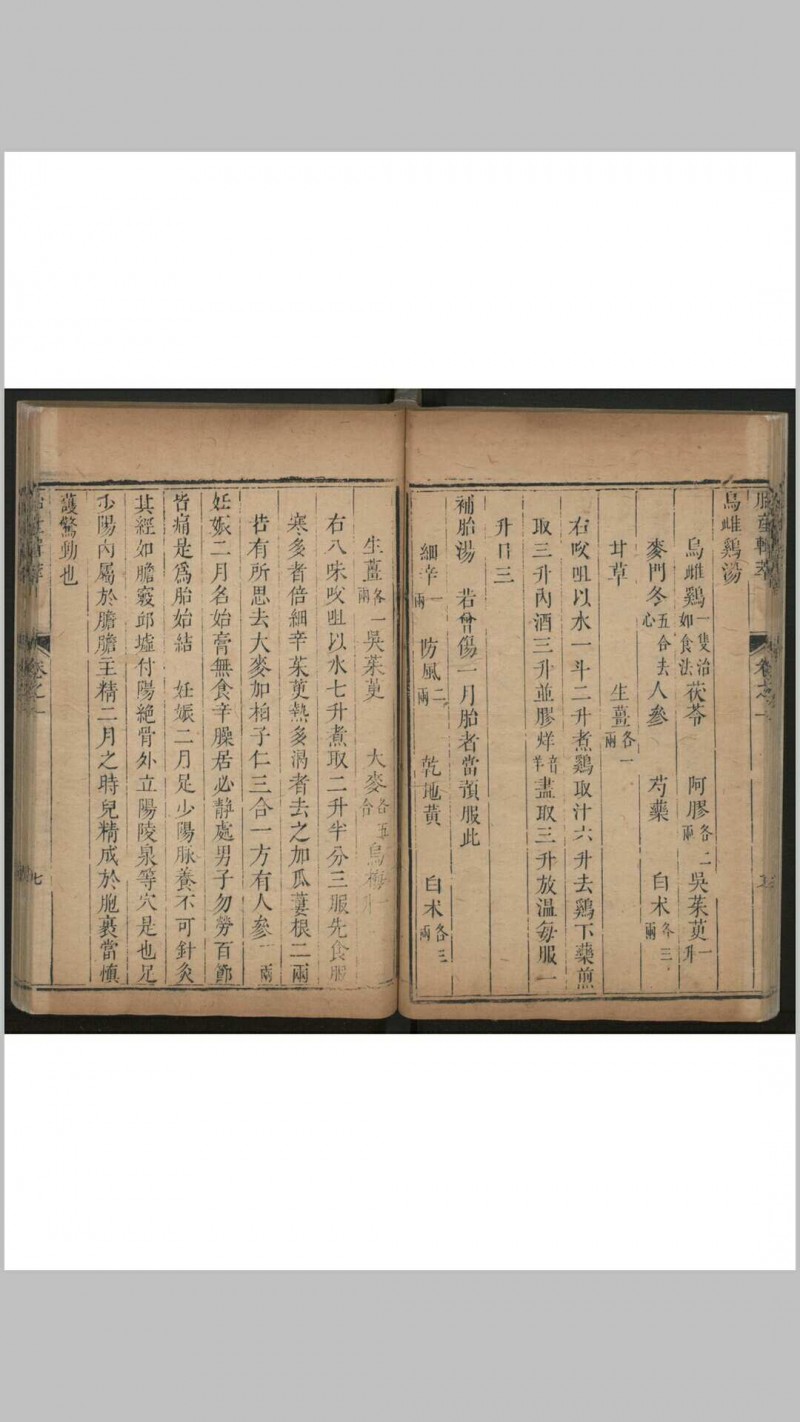 烏雌鷄湯
烏雌鷄一隻治如食法 茯苓 阿膠各二兩 吳茱萸一升
麥門冬五合去心 人參 芍藥 白朮各三兩
甘草 生薑各一兩
右㕮咀以水一斗二升煮鷄取汁六升去鷄下藥煎
取三升內酒三升並膠烊音羊盡取三升放温每服一
升日三
補胎湯 若曾傷一月胎者當預服此
細辛一兩 防風二兩 乾地黃 白朮各三兩
生薑各一兩 吳茱萸 大麥各五合 烏梅一升
右八味㕮咀以水七升煮取二升半分三服先食服
寒多者倍細辛茱萸熱多渴者去之加瓜蔞根二兩
若有所思去大麥加柏子仁三合一方有人參一兩
妊娠二月名始膏無食辛臊居必静處男子勿勞百節
皆痛是爲胎始結 妊娠二月足少陽脉養不可針灸
其經如膽竅邱墟付陽絶骨外立陽陵泉等穴是也足
少陽內屬於膽膽主精二月之時兒精成於胞裹當慎
護驚動也
卷之一
七